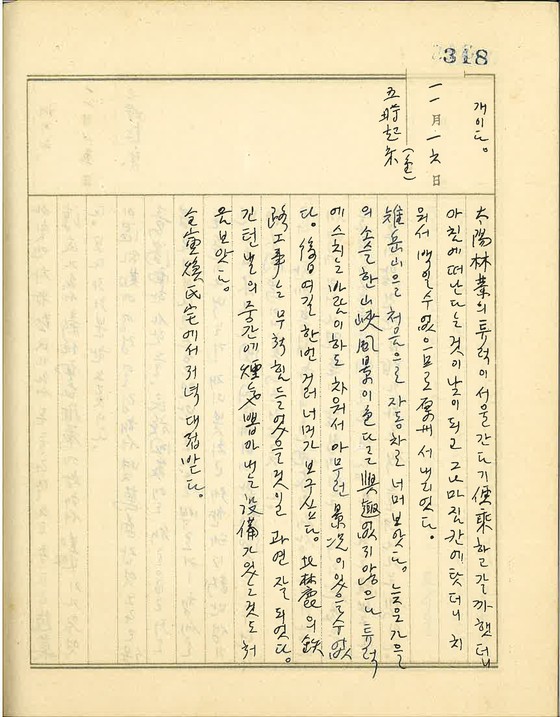 318
개이다。
一一月一六日
(金)
五時起床
太陽林業의 튜럭이 서울 간다기 便乘하고 갈까 했더니
아침에 떠난다는 것이 낮이 되고 그나마 짐칸에 탓더니 치
워서 백일 수 없으므로 原州서 내리었다。
雉岳山을 처음으로 자동차로 너머 보았다。 늦은 가을
의 소슬한 山峽風景이 색다른 興趣 없지 않으나 튜럭
에 스치는 바람이 하도 차워서 아무런 景況이 있을 수 없
다。 後日 여길 한번 걸어 너머가 보구 싶다。 의 鉄
路工事는 무척 힘들었을 것인데 과연 잘 되었다。
긴 턴넬의 중간에 煙氣 뽑아내는 設備가 있는 것도 처
음 보았다。
에서 저녁 대접 받다。